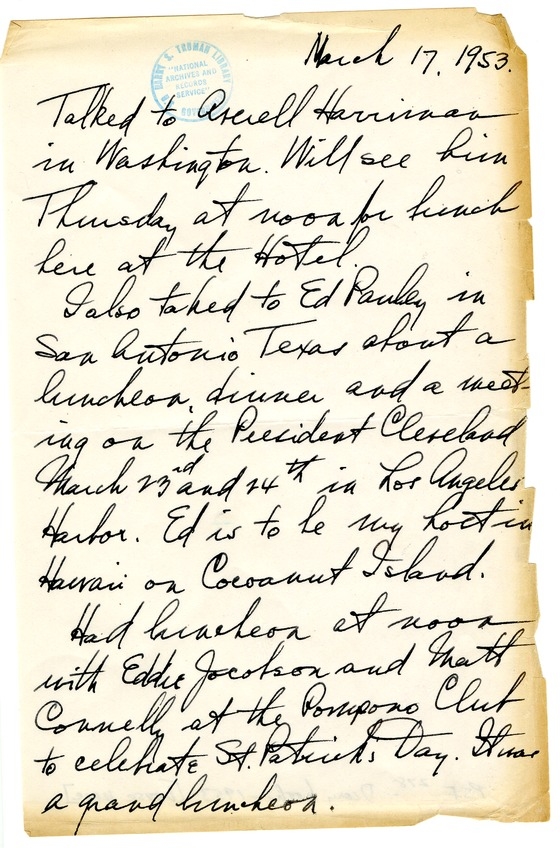 March 17, 1953.
HARRY S. TRUMAN LIBRARY
"NATIONAL
ARCHIVES AND
RECORDS
SERVICE"
Talked to Averell Harriman
in Washington. Will see him
Thursday at noon for lunch
here at the Hotel.
I also talked to Ed Pauley in
San Antonio Texas about a
luncheon, dinner and a meet-
ing on the President Cleveland
March 23rd and 24th in Los Angeles
Harbor. Ed is to be my host in
Hawaii on Cocoanut Island.
Had luncheon at noon
with Eddie Jacobson and Matt
Connelly at the Pompono Club
to celebrate St. Patrick's Day. It was
a grand luncheon.